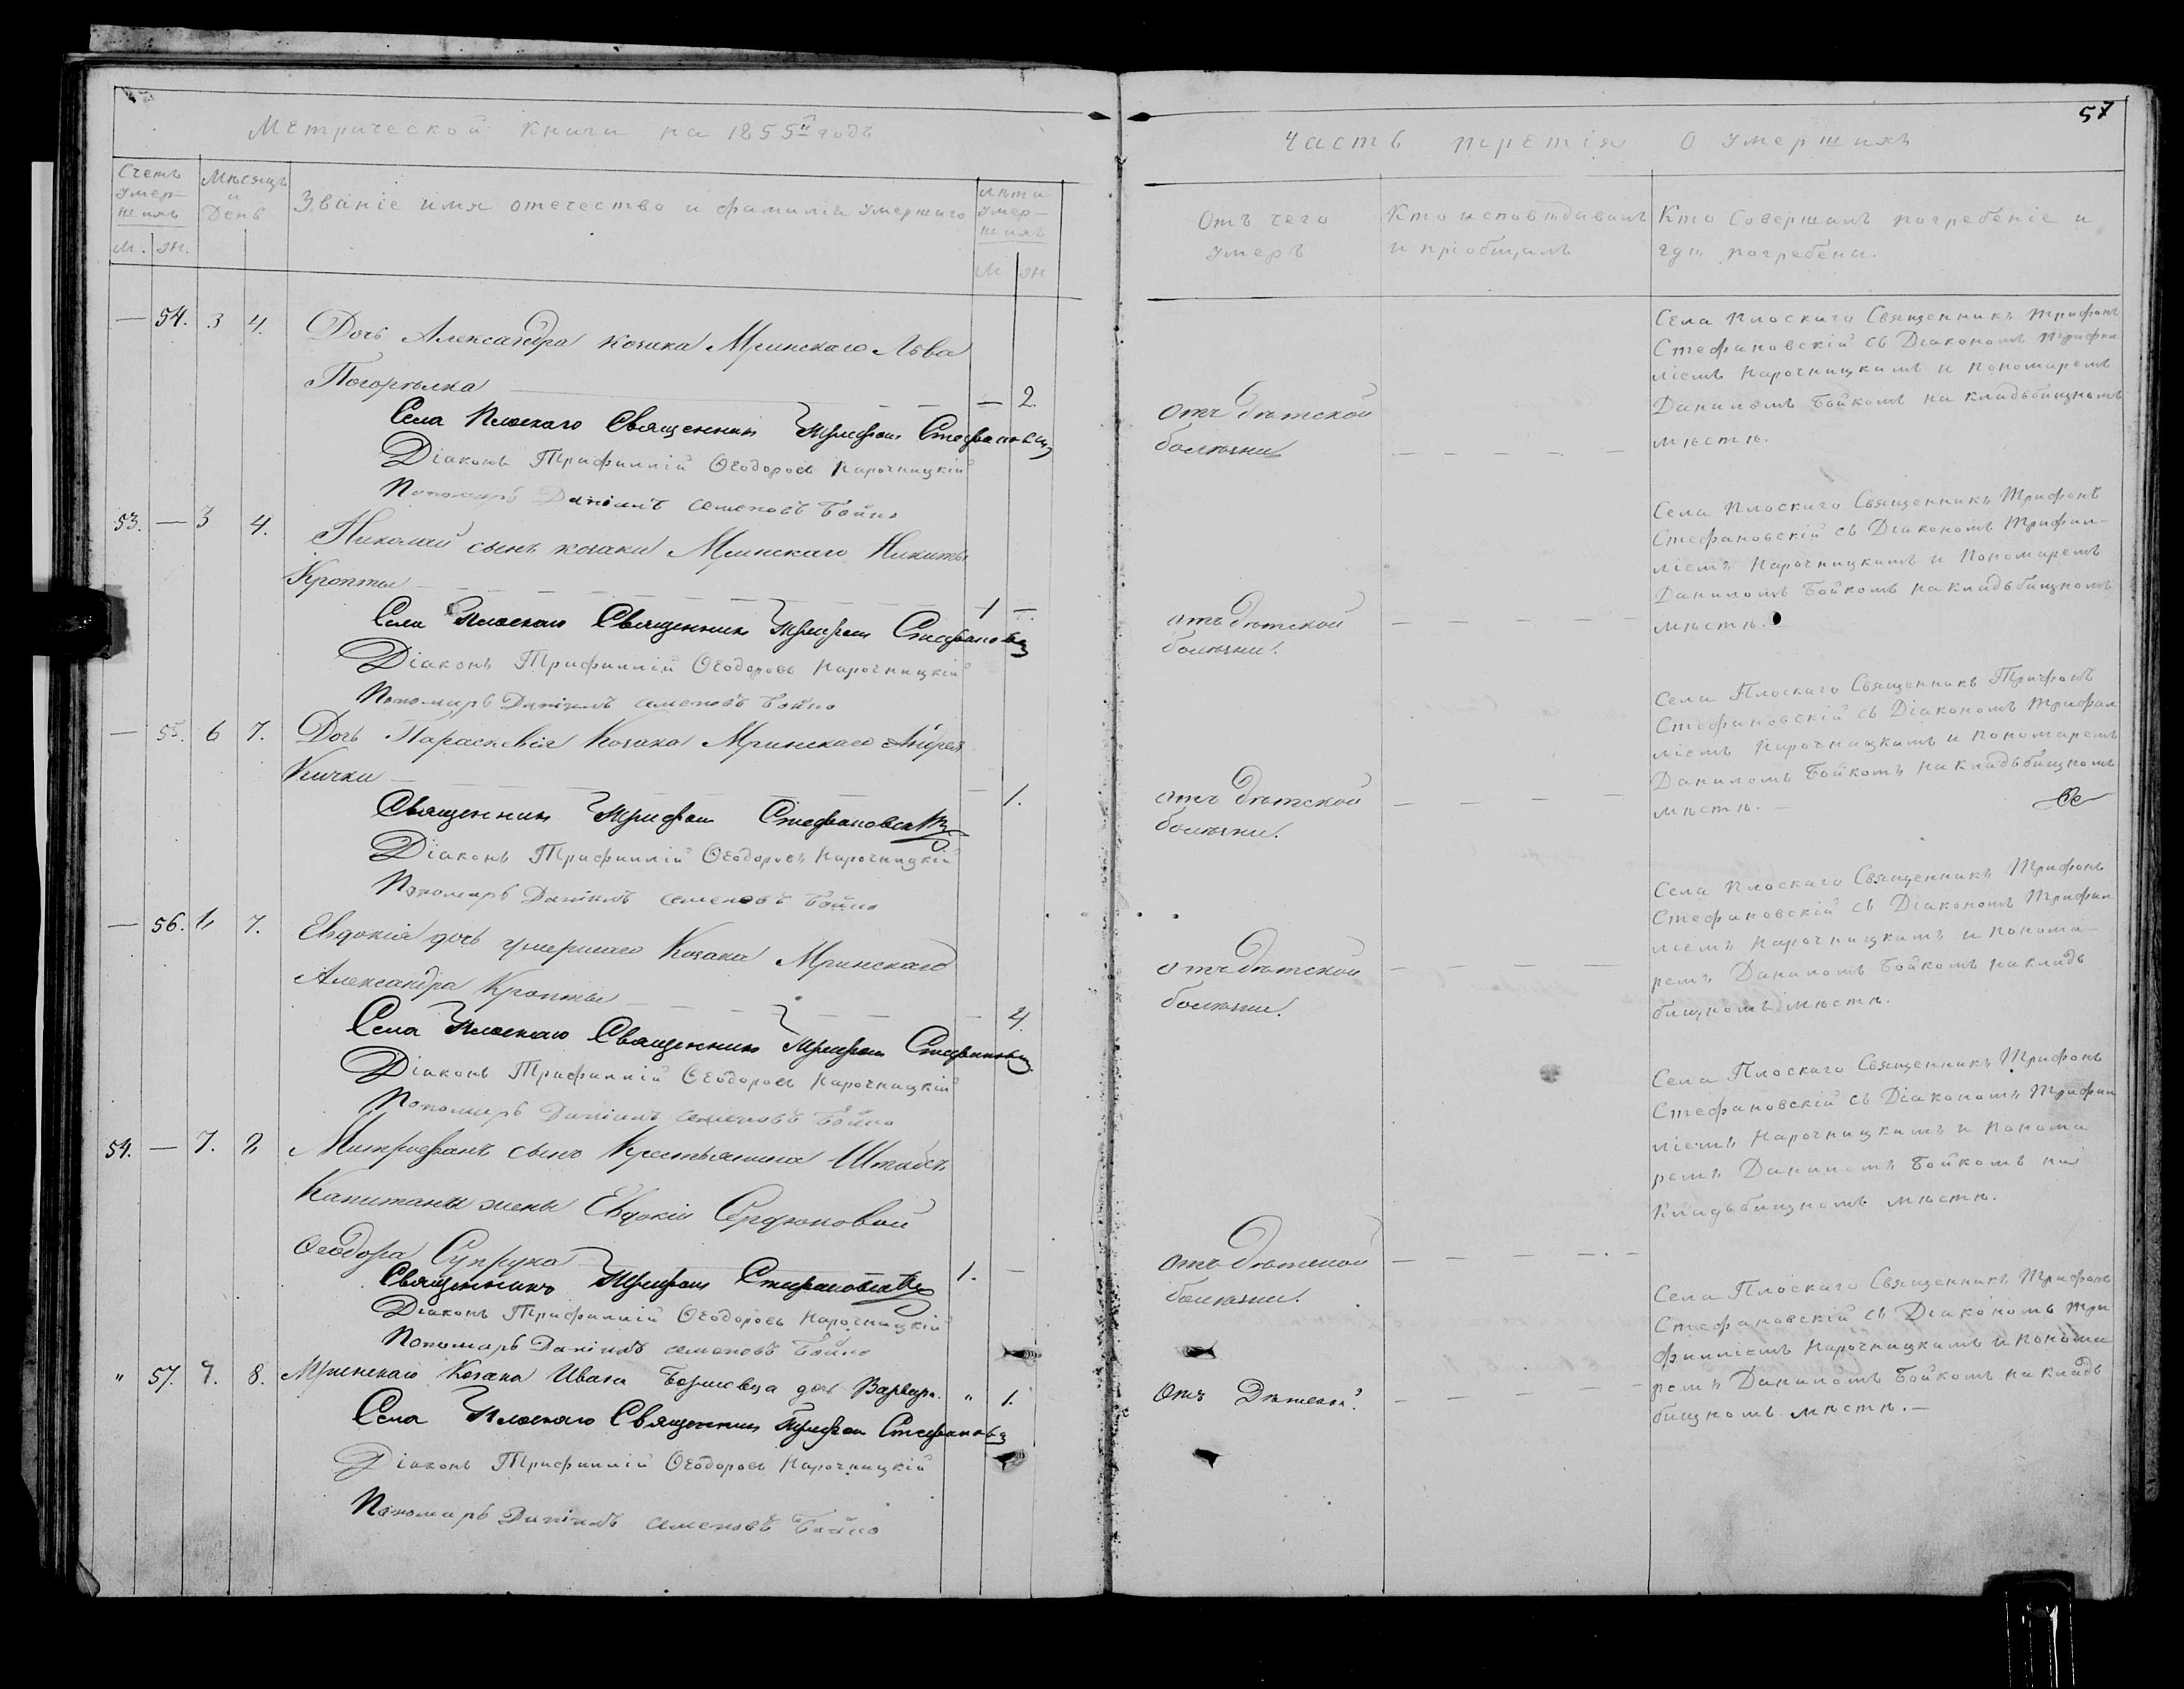 57
Метрической книги на 1855й годъ
Часть третія О умершихъ
Счетъ умер-шихъ
М. Ж.
Мѣсяцъ и День
Званіе имя отечество и фамилія умершаго
Лѣта умер-шихъ
М Ж
Отъ чего умеръ
Кто исповѣдавалъ и пріобщалъ
Кто Совершалъ погребеніе и гдѣ погребены.
— 54. 3 4. Дочь Александра козака Мринскаго Льва
Погорѣлка — — — 2.
Села Плоскаго Священникъ Трифонъ Стефановскій
Діаконъ Трифиллій Ѳеодоровъ Нарочницкій
Пономарь Даніилъ Семеновъ Бойко
отъ дѣтской
болѣзни — — — —
Села Плоскаго Священникъ Трифонъ
Стефановскій съ Діакономъ Трифил
ліемъ Нарочницкимъ и Пономаремъ
Даниломъ Бойкомъ на кладьбищномъ
мѣстѣ.
53. — 3 4. Николай сынъ козака Мринскаго Никиты
Кропты — — — — — — 1 —.
Села Плоскаго Священникъ Трифонъ Стефановскій
Діаконъ Трифиллій Ѳеодоровъ Нарочницкій
Пономарь Даніилъ Семеновъ Бойко
отъ дѣтской — — — —
болѣзни.
Села Плоскаго Священникъ Трифонъ
Стефановскій съ Діакономъ Трифил-
ліемъ Нарочницкимъ и Пономаремъ
Даниломъ Бойкомъ на кладьбищномъ
мѣстѣ.
— 55. 6 7. Дочь Параскевія Козака Мринскаго Андрея
Кички — — — — — — 1.
Священникъ Трифонъ Стефановскій
Діаконъ Трифиллій Ѳеодоровъ Нарочницкій
Пономарь Даніилъ Семеновъ Бойко
отъ дѣтской — — — —
болѣзни.
Села Плоскаго Священникъ Трифонъ
Стефановскій съ Діакономъ Трифил
ліемъ Нарочницкимъ и Пономаремъ
Даниломъ Бойкомъ на кладьбищномъ
мѣстѣ. —
— 56. 7. Евдокія дочь умершаго Козака Мринскаго
Александра Кропты — — — — —
Села Плоскаго Священникъ Трифонъ Стефановскій
Діаконъ Трифиллій Ѳеодоровъ Нарочницкій
Пономарь Даніилъ Семеновъ Бойко
отъ дѣтской — — — —
болѣзни.
Села Плоскаго Священникъ Трифонъ
Стефановскій съ Діакономъ Трифил
ліемъ Нарочницкимъ и Понома-
ремъ Даниломъ Бойкомъ на кладь
бищномъ мѣстѣ.
54. — 7. Митрофанъ сынъ Крестьянина Штабсъ
Капитанши жены Евдокіи Сердюковой
Ѳеодора Супруна 1. —
Священникъ Трифонъ Стефановскій
Діаконъ Трифиллій Ѳеодоровъ Нарочницкій
Пономарь Даніилъ Семеновъ Бойко
отъ дѣтской — — — — —
болѣзни.
Села Плоскаго Священникъ Трифонъ
Стефановскій съ Діакономъ Трифил
ліемъ Нарочницкимъ и Понома
ремъ Даниломъ Бойкомъ на
Кладьбищномъ мѣстѣ.
" 57. 7. 8. Мринскаго Козака Ивана дочь Варвара. " 1.
Села Плоскаго Священникъ Трифонъ Стефановскій
Діаконъ Трифиллій Ѳеодоровъ Нарочницкій
Пономарь Даніилъ Семеновъ Бойко
Отъ Дѣтской — — — —
Села Плоскаго Священникъ Трифонъ
Стефановскій съ Діакономъ Три
филліемъ Нарочницкимъ и Понома
ремъ Даниломъ Бойкомъ на кладь
бищномъ мѣстѣ. —